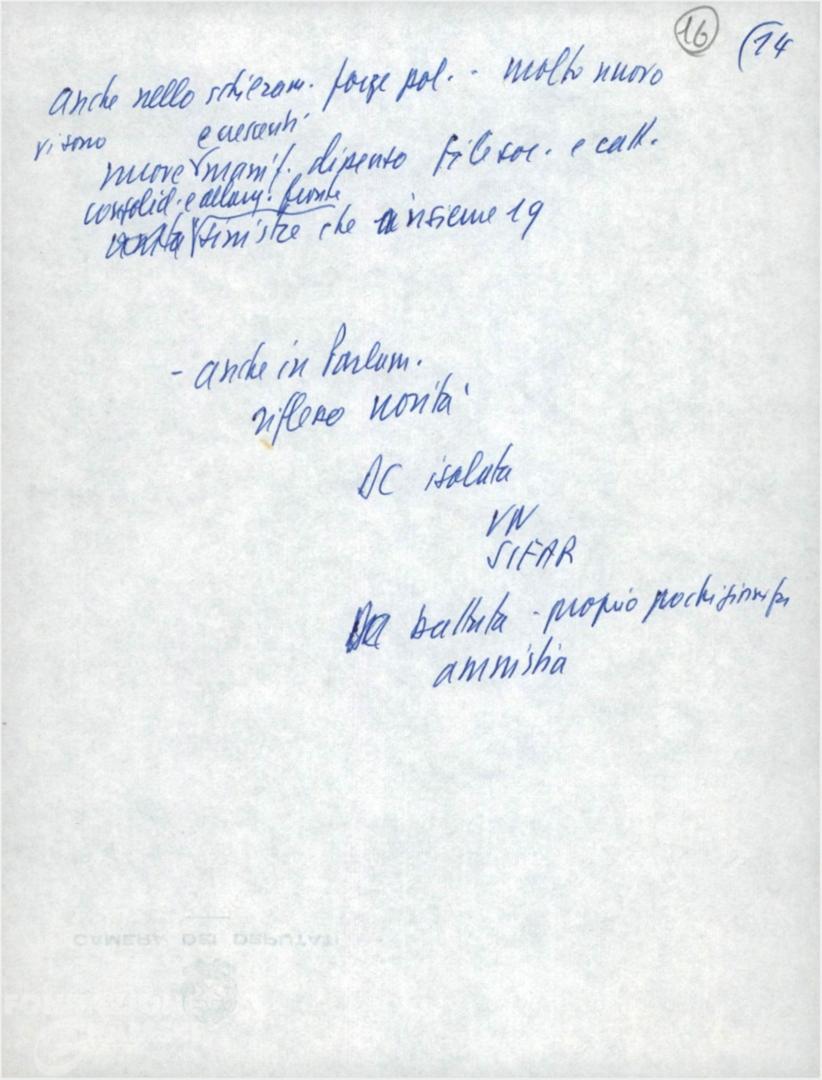 16
(14
anche nello schieram. forze pol. - molto nuovo
vi sono e crescenti
nuove manif. dissenso file soc. e catt.
consolid. e allarg. fronte
sinistre che insieme 19
- anche in Parlam.
riflesso novità
DC isolata
VN
SIFAR
battuta - proprio pochi
amnistia
CAMERA DEI DEPUTATI